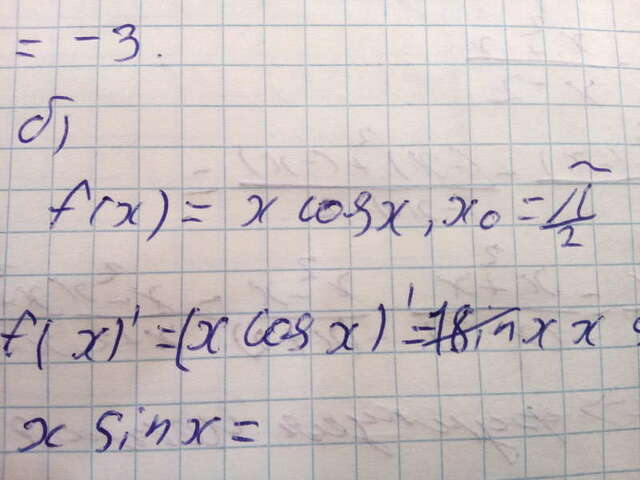 = -3.
б)
f(x) = x cos x, x₀ = π/2
f(x)' = (x cos x)' =
x sin x =